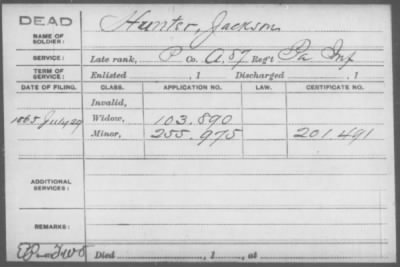 DEAD
NAME OF SOLDIER: Hunter, Jackson
SERVICE: Late rank, P Co. A. 87 Reg't Pa Inf
TERM OF SERVICE: Enlisted , 1 Discharged , 1
DATE OF FILING. CLASS. APPLICATION NO. LAW. CERTIFICATE NO.
Invalid,
1865 July 29 Widow, 103.890
Minor, 255.975 201.491
ADDITIONAL SERVICES:
REMARKS:
Died , 1 , at